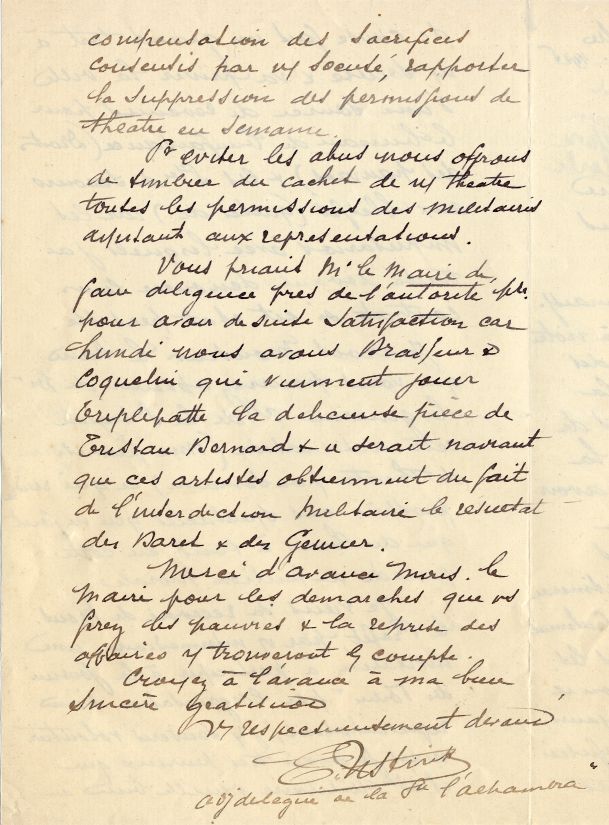 compensation des sacrifices
consentis par n/ société, rapporter
la suppression des permissions de
théâtre en semaine.
Pr éviter les abus nous offrons
de timbrer du cachet de n/ théâtre
toutes les permissions des militaires
assistant aux représentations.
Vous priant Mr le Maire de
faire diligence près de l'autorité
pour avoir de suite satisfaction car
Lundi nous avons Brasseur &
Coquelin qui viennent jouer
Triplepatte la délicieuse pièce de
Tristan Bernard & il serait navrant
que ces artistes obtiennent du fait
de l'interdiction Militaire le résultat
des Baret & des Gemier.
Merci d'avance Mons. le
Maire pour les démarches que vs
ferez les pauvres & la reprise des
affaires y trouveront le compte.
Croyez à l'avance à ma bien
sincère gratitude
V/ respectueusement dévoué
adj délégué de la Sté l'alhambra